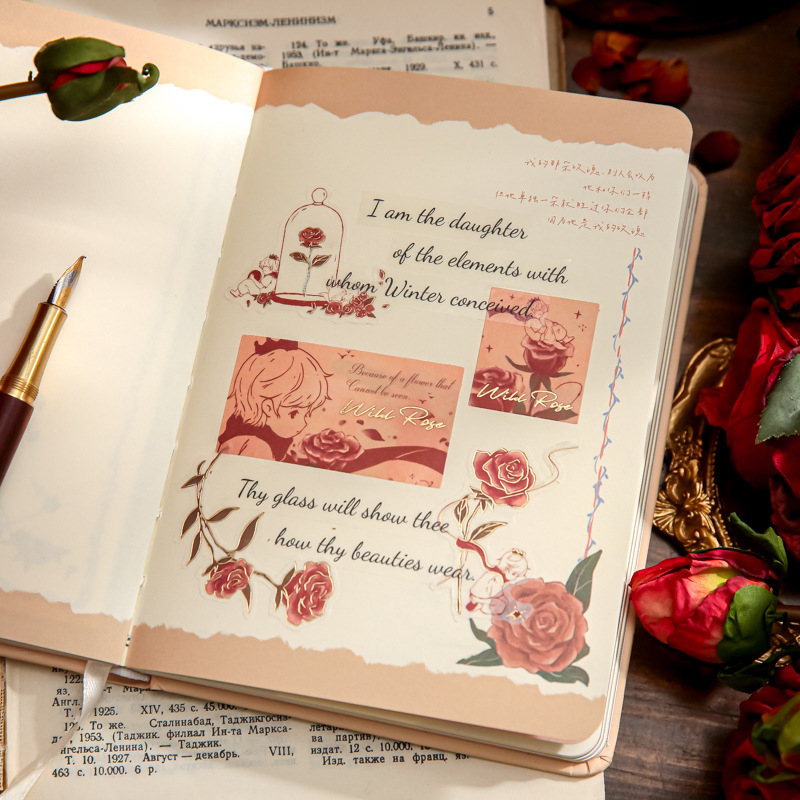 МАРКСИЗМ-ЛЕНИНИЗМ
5
124. То же. Уфа, Башкир. кн. изд.
1953. (Ин-т Маркса-Энгельса-Ленина). —
Башкир.
1929. X, 431 с
我的那朵玫瑰,别人会以为
她和你们一样
但她单独一朵就胜过你们全部
因为她是我的玫瑰
I am the daughter
of the elements with
whom Winter conceived
Because of a flower that
Cannot be seen
Wild Rose
Wild Rose
Thy glass will show thee
how thy beauties wear.
122.
яз.
Англ.
Т. 1925. XIV, 435 с. 45.000.
То же. Сталинабад, Таджикгосиз-
1953. (Таджик. филиал Ин-та Маркса-
Энгельса-Ленина). — Таджик.
Т. 10. 1927. Август — декабрь. VIII,
463 с. 10.000. 6 р.
ва партии).
издат. 12 с. 10.000,
Изд. также на франц. яз.